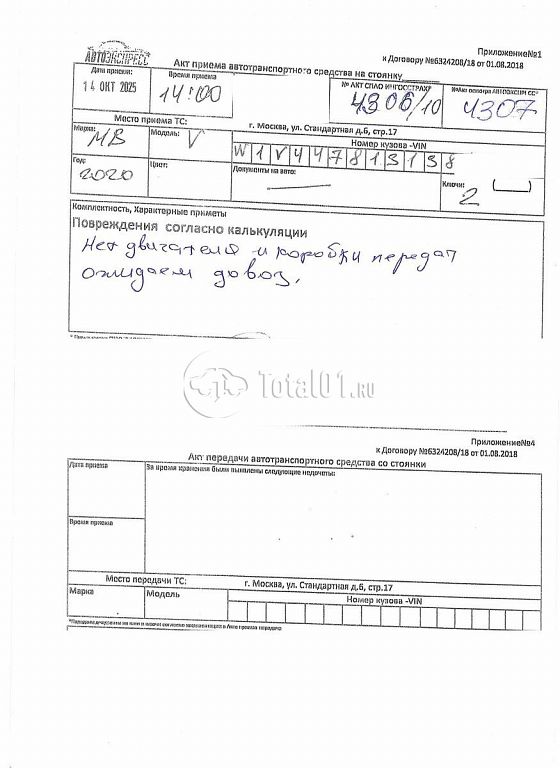 Приложение№1
к Договору №6324208/18 от 01.08.2018
АВТОЭКСПРЕСС
Акт приема автотранспортного средства на стоянку
Дата приемки:
Время приема
№ АКТ СПАО ИНГОССТРАХ
14 ОКТ 2025
14:00
4306/10
4307
Место приема ТС:
г. Москва, ул. Стандартная д.6, стр.17
Марка:
МВ
Модель:
V
Номер кузова -VIN
W1V447813138
Год:
2020
Цвет:
Документы на авто:
Ключи:
2
Комплектность, Характерные приметы
Повреждения согласно калькуляции
Нет двигателя и коробки передач
ожидаем довоз.
Total01.RU
Приложение№4
к Договору №6324208/18 от 01.08.2018
Акт передачи автотранспортного средства со стоянки
Дата приема
За время хранения были выявлены следующие недочеты:
Время приема
Место передачи ТС:
г. Москва, ул. Стандартная д.6, стр.17
Марка
Модель
Номер кузова -VIN